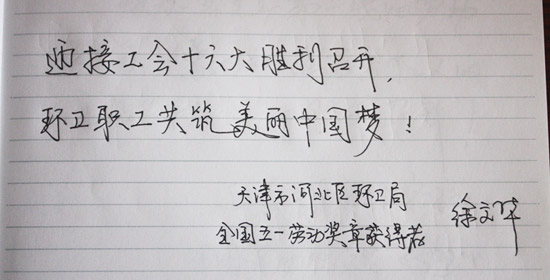 迎接工会十六大胜利召开，
环卫职工共筑美丽中国梦！
天津市河北区环卫局
全国五一劳动奖章获得者
徐文华